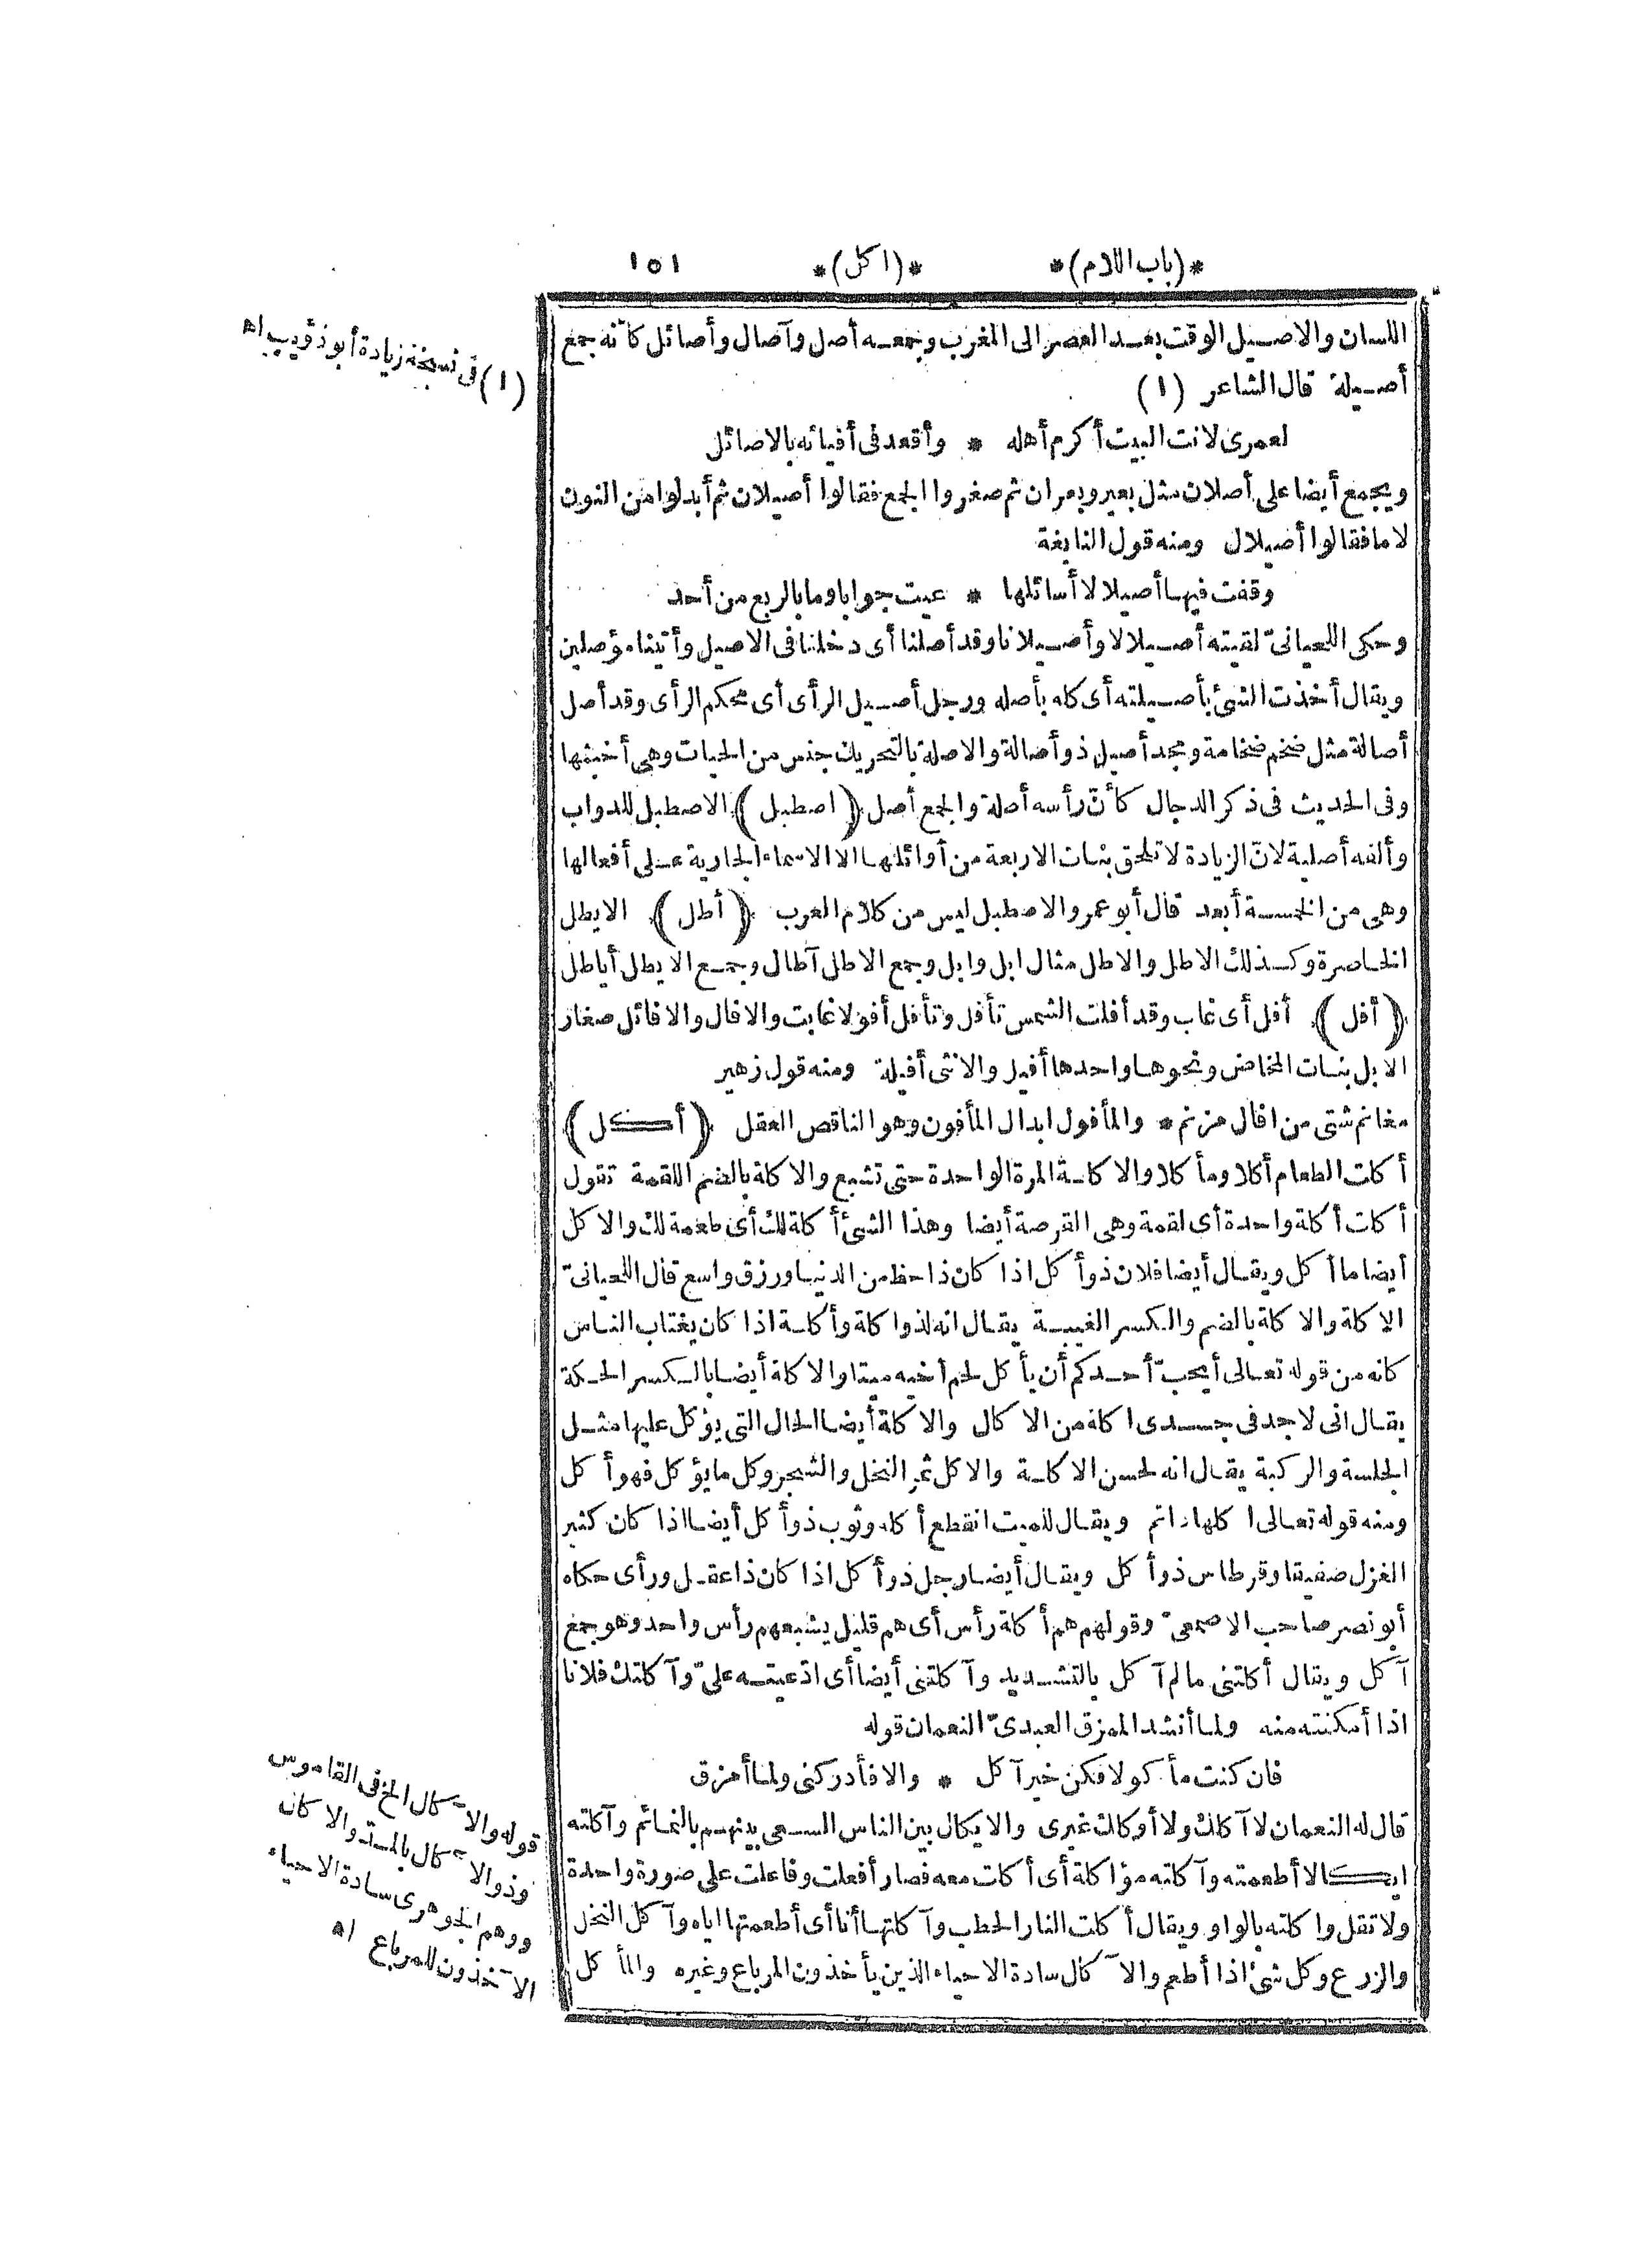 *(باب اللام)* *(اكل)* ١٥١
اللسان والاصيل الوقت بعد العصر الى المغرب وجمعه أصل وآصال وأصائل كأنه جمع
أصيلة قال الشاعر (١)
لعمرى لانت البيت أكرم أهله * وأقعد فى أفيائه بالاصائل
ويجمع أيضا على أصلان مثل بعير وبعران ثم صغروا الجمع فقالوا أصيلان ثم أبدلوا من النون
لاما فقالوا أصيلال ومنه قول النابغة
وقفت فيها أصيلا لا أسائلها * عيت جوابا وما بالربع من أحد
وحكى اللحيانىّ لقيته أصيلالا وأصيلانا وقد أصلنا أى دخلنا فى الاصيل وأتينا مؤصلين
ويقال أخذت الشئ بأصيلته أى كله بأصله ورجل أصيل الرأى أى محكم الرأى وقد أصل
أصالة مثل ضخم ضخامة ومجد أصيل ذو أصالة والاصلة بالتحريك جنس من الحيات وهى أخبثها
وفى الحديث فى ذكر الدجال كأنّ رأسه أصلة والجمع أصل (اصطبل) الاصطبل للدواب
وألفه أصلية لانّ الزيادة لا تلحق بنات الاربعة من أوائلها الا الاسماء الجارية على أفعالها
وهى من الخمسة أبعد قال أبو عمرو الاصطبل ليس من كلام العرب (أطل) الايطل
الخاصرة وكذلك الاطل والاطل مثال ابل وابل وجمع الاطل آطال وجمع الايطل أياطل
(أفل) أفل أى غاب وقد أفلت الشمس تأفل وتأفل أفولا غابت والافال والافائل صغار
الابل بنات المخاض ونحوها واحدها أفيل والانثى أفيلة ومنه قول زهير
مغانم شتى من افال مزنم * والمأفول ابدال المأفون وهو الناقص العقل (أكل)
أكلت الطعام أكلا ومأكلا والاكلة المرة الواحدة حتى تشبع والاكلة بالضم اللقمة تقول
أكلت أكلة واحدة أى لقمة وهى القرصة أيضا وهذا الشئ أكلة لك أى طعمة لك والاكل
أيضا ما أكل ويقال أيضا فلان ذو أكل اذا كان ذا حظ من الدنيا ورزق واسع قال اللحيانىّ
الاكلة والاكلة بالضم والكسر الغيبة يقال انه لذو اكلة وأكلة اذا كان يغتاب الناس
كانه من قوله تعالى أيحبّ أحدكم أن يأكل لحم أخيه ميتا والاكلة أيضا بالكسر الحكة
يقال انى لاجد فى جسدى اكلة من الاكال والاكلة أيضا الحال التى يؤكل عليها مثل
الجلسة والركبة يقال انه لحسن الاكلة والاكل ثمر النخل والشجر وكل ما يؤكل فهو أكل
ومنه قوله تعالى اكلها دائم ويقال للميت انقطع أكله وثوب ذو أكل أيضا اذا كان كثير
الغزل صفيقا وقرطاس ذو أكل ويقال أيضا رجل ذو أكل اذا كان ذا عقل ورأى حكاه
أبو نصر صاحب الاصمعىّ وقولهم هم أكلة رأس أى هم قليل يشبعهم رأس واحد وهو جمع
آكل ويقال أكلتنى ما لم آكل بالتشديد وآكلتنى أيضا أى ادّعيته علىّ وآكلتك فلانا
اذا أمكنته منه ولما أنشد الممزق العبدىّ النعمان قوله
فان كنت مأكولا فكن خير آكل * والا فأدركنى ولما أمزق
قال له النعمان لا آكلك ولا أوكلك غيرى والايكال بين الناس السعى بينهم بالنمائم وآكلته
ايكالا أطعمته وآكلته مؤاكلة أى أكلت معه فصار أفعلت وفاعلت على صورة واحدة
ولا تقل واكلته بالواو ويقال أكلت النار الحطب وآكلتها أنا أى أطعمتها اياه وآكل النخل
والزرع وكل شئ اذا أطعم والآكال سادة الاحياء الذين يأخذون المرباع وغيره والمأكل
(١) فى نسخة زيادة أبو ذؤيب اه
قوله والآكال الخ فى القاموس
وذو الآكال بالمد والا كان
ووهم الجوهرى سادة الاحياء
الآخذون للمرباع اه